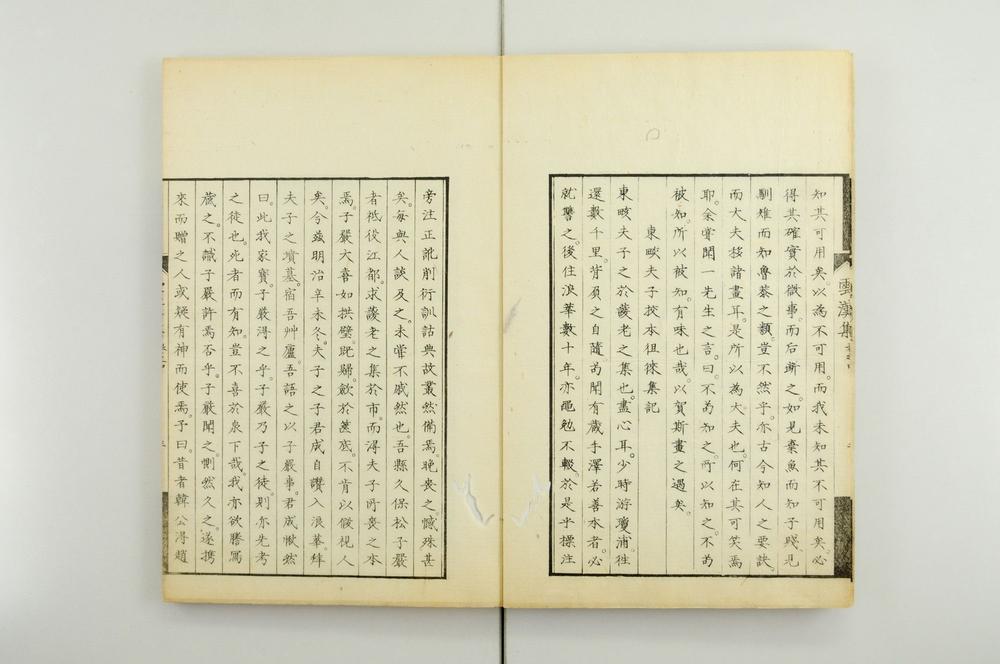 知其可用矣。以為不可用。而我未知其不可用矣。必
得其確實於微事。而后斷之。如見棄魚而知子賤。見
馴雉而知魯恭之類。豈不然乎。亦古今知人之要訣。
而大夫移諸畫耳。是所以為大夫也。何在其可笑焉
耶。余嘗聞一先生之言。曰。不為知之。所以知之。不為
被知。所以被知。有味也哉。以賀斯畫之遇矣。
東畡夫子挍本徂徠集記
東畡夫子之於蘐老之集也。盡心耳。少時游瓊浦。往
還數千里。背負之自隨。為聞有藏手澤若善本者。必
就讐之。後住浪華數十年。亦黽勉不輟。於是乎標注
旁注正訛削衍訓詁典故叢然備焉。晚喪之。憾殊甚
矣。每與人談及之。未甞不戚然也。吾縣久保松子嚴
者祗役江都。求蘐老之集於市。而得夫子所喪之本
焉。子嚴大喜如拱璧。既歸。歛於篋底。不肯以假視人
矣。今茲明治辛未冬。夫子之子君成自讚入浪華。拜
夫子之墳墓。宿吾艸廬。吾語之以子嚴事。君成愀然
曰。此我家寶。子嚴得之乎。子嚴乃子之徒。則亦先考
之徒也。死者而有知。豈不喜於泉下哉。我亦欲謄寫
藏之。不識子嚴許焉否乎。子嚴聞之。惻然久之。遂携
來而贈之人或疑有神而使焉。子曰。昔者韓公得趙
雲漢集